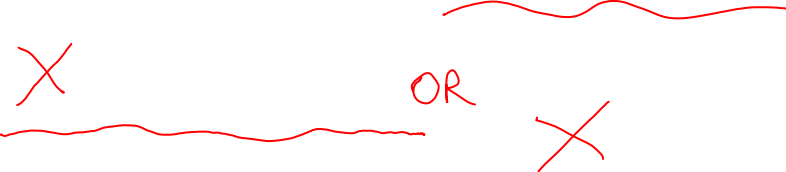 X OR X